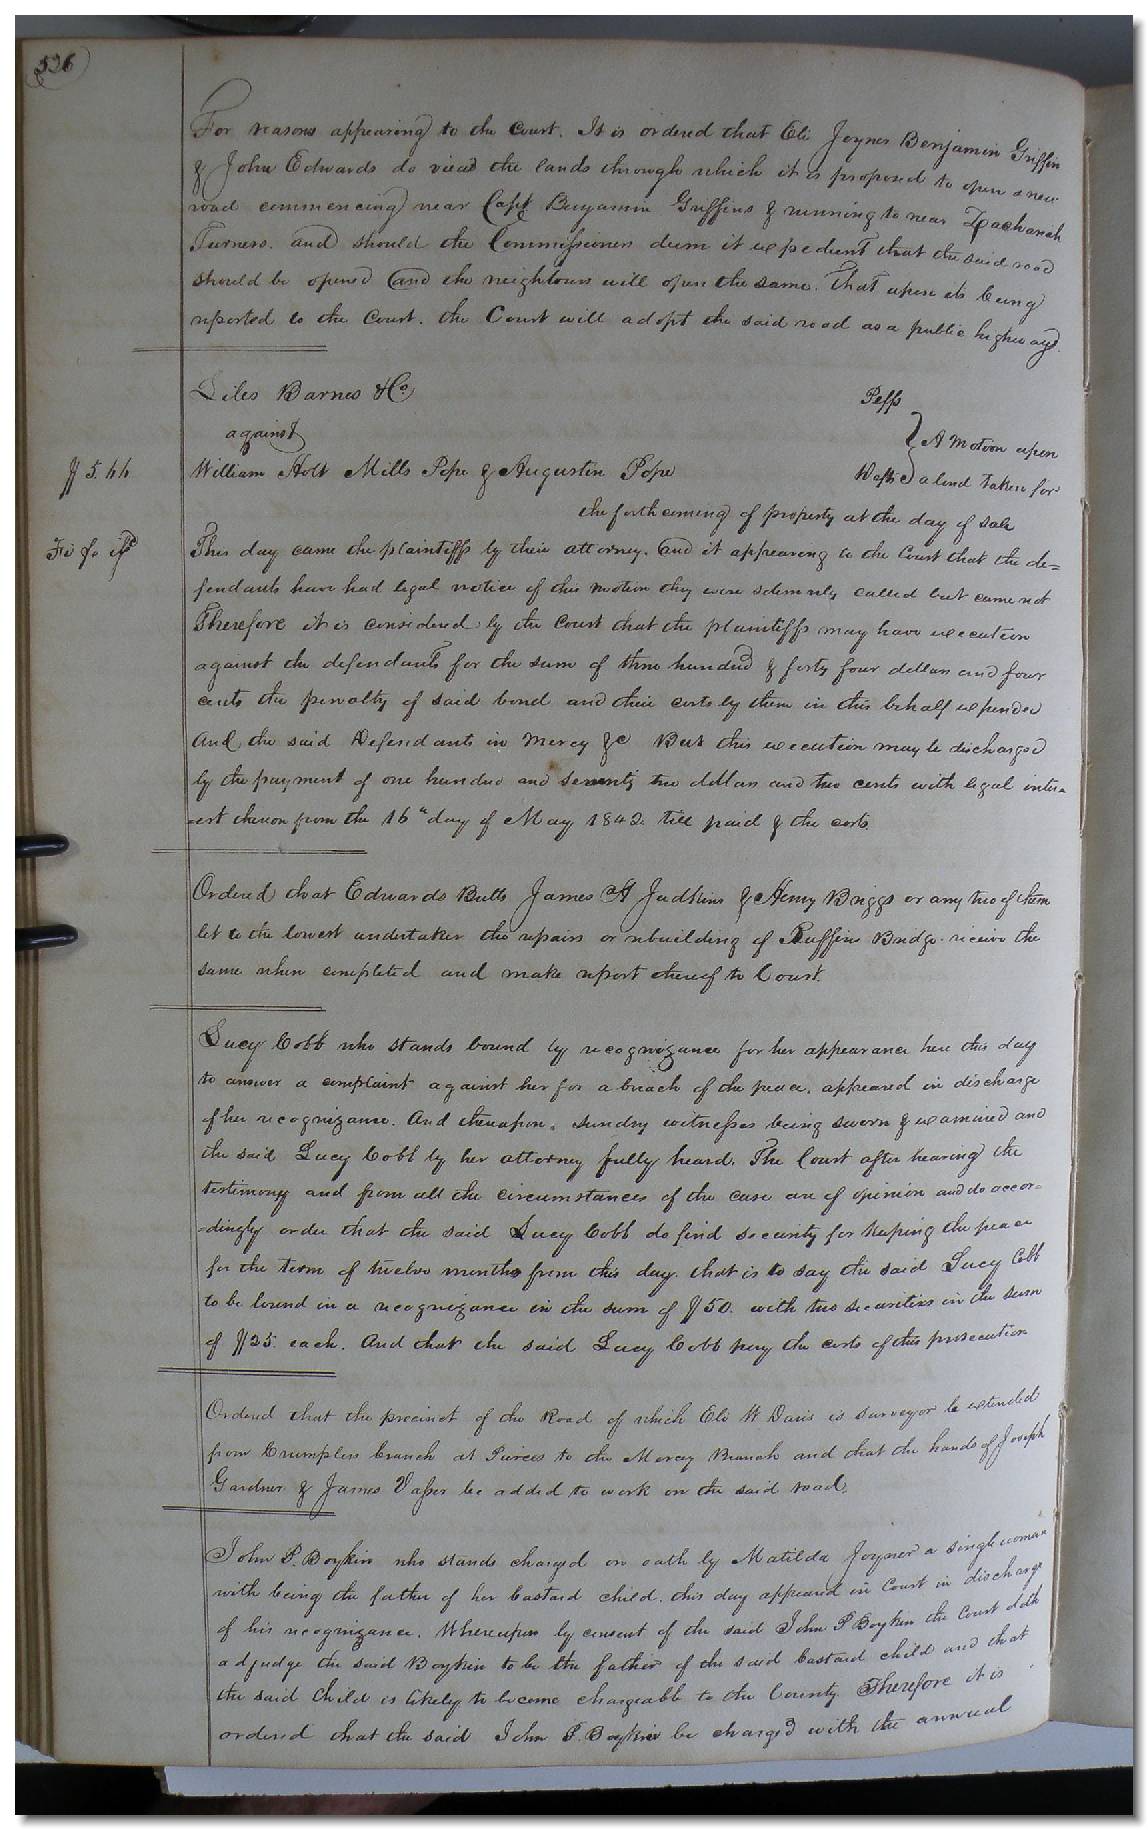 526
For reasons appearing to the Court. It is ordered that Eli Joyner Benjamin Griffin
& John Edwards do view the lands through which it is proposed to open a new
road commencing near Capt Benjamin Griffins & running to near Zachariah
Turners. and should the Commissioners deem it expedient that the said road
should be opened (and the neighbours will open the same. That upon its being
reported to the Court. the Court will adopt the said road as a public highway.
Liles Barnes & Co Peffs
against A Motion upon
$5.44 William Holt Mills Pope & Augustin Pope a bond taken for
the forthcoming of property at the day of sale
Fi fa
This day came the plaintiffs by their attorney. and it appearing to the Court that the de=
fendants have had legal notice of this motion they were solemnly called but came not
Therefore it is considered by the Court that the plaintiffs may have execution
against the defendants for the sum of three hundred & forty four dollars and four
cents the penalty of said bond and their costs by them in this behalf expended
And the said Defendants in Mercy &c But this execution may be discharged
by the payment of one hundred and seventy two dollars and two cents with legal inter=
=est thereon from the 16th day of May 1842. till paid & the costs.
Ordered that Edwards Butts James A Judkins & Henry Briggs or any two of them
let to the lowest undertaker the repairs or rebuilding of Ruffins Bridge receive the
same when completed and make report thereof to Court.
Lucy Cobb who stands bound by recognizance for her appearance here this day
to answer a complaint against her for a breach of the peace. appeared in discharge
of her recognizance. And thereupon. sundry witnesses being sworn & examined and
the said Lucy Cobb by her attorney fully heard. The Court after hearing the
testimony and from all the circumstances of the case are of opinion and do accor=
=dingly order that the said Lucy Cobb do find security for keeping the peace
for the term of twelve months from this day. that is to say the said Lucy Cobb
to be bound in a recognizance in the sum of $50. with two securities in the sum
of $25. each. And that the said Lucy Cobb pay the costs of this prosecution
Ordered that the precinct of the Road of which Eli W Davis is surveyor be extended
from Crumplers branch at Pierces to the Mercy Branch and that the hands of Joseph
Gardner & James Vasser be added to work on the said road.
John P. Boykin who stands charged on oath by Matilda Joyner a single woman
with being the father of her bastard child. this day appeared in Court in discharge
of his recognizance. Whereupon by consent of the said John P Boykin the Court doth
adjudge the said Boykin to be the father of the said bastard child and that
the said Child is likely to become chargeable to the County. Therefore it is
ordered that the said John P. Boykin be charged with the annual